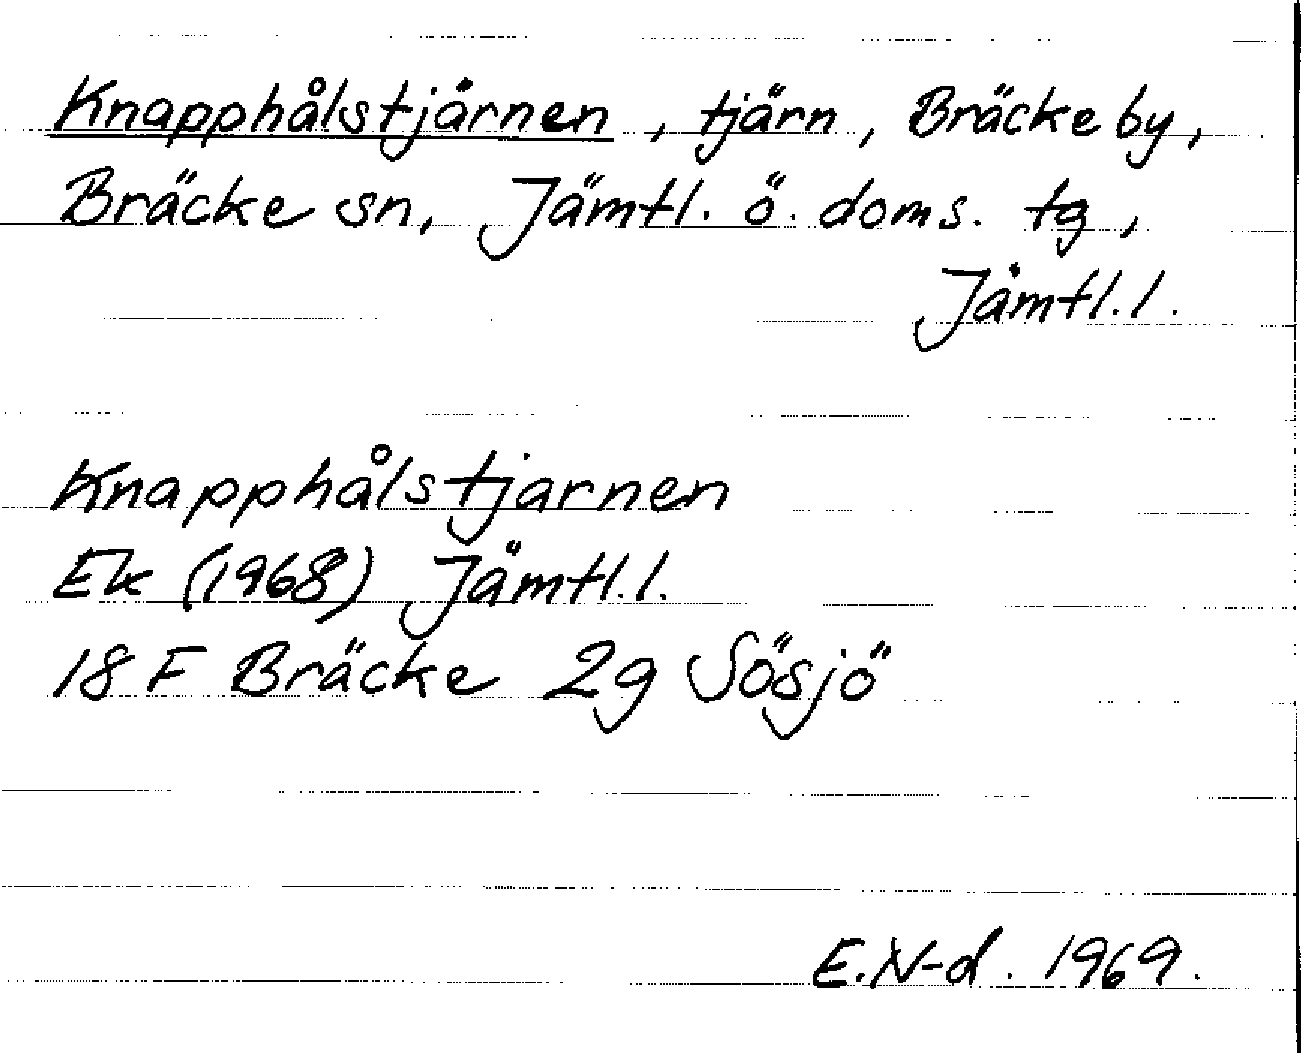 Knapphålstjärnen, tjärn, Bräcke by,
Bräcke sn, Jämtl. ö. doms. tg,
Jämtl. l.
Knapphålstjarnen
Ek (1968) Jämtl. l.
18 F Bräcke 2g Sösjö
E.N-d. 1969.